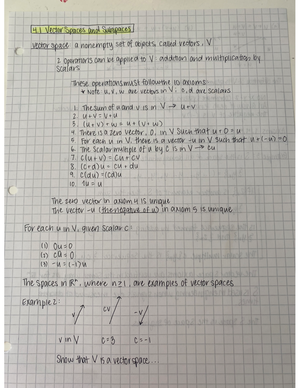 4.1 Vector Spaces and Subspaces
Vector space: a nonempty set of objects, called vectors, V
2 operations can be applied to V: addition and multiplication by
scalars
These operations must follow the 10 axioms:
* Note u, v, w are vectors in V; c, d are scalars
1. The sum of u and v is in V → u+v
2. u+v = v+u
3. (u+v)+w = u+(v+w)
4. There is a zero vector, 0, in V such that u+0 = u
5. for each u in V, there is a vector -u in V such that u+(-u) = 0
6. The scalar multiple of u by c is in V → cu
7. c(u+v) = cu+cv
8. (c+d)u = cu+du
9. c(du) = (cd)u
10. 1u = u
The zero vector in axiom 4 is unique
The vector -u (the negative of u) in axiom 5 is unique
For each u in V, given scalar c:
(1) 0u = 0
(2) c0 = 0
(3) -u = (-1)u
The spaces in ℝⁿ, where n≥1, are examples of vector spaces
Example 2:
v cv -v
v in V c=3 c=-1
Show that V is a vector space...